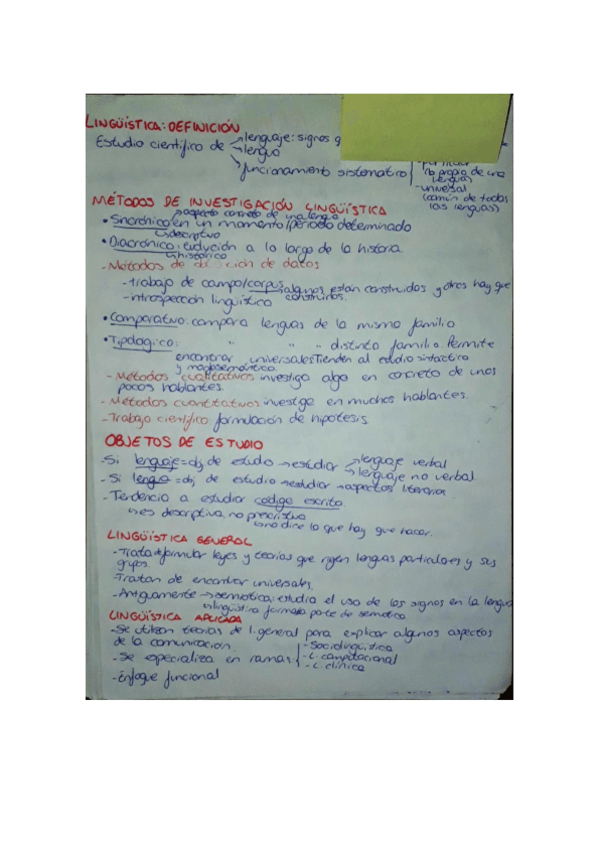 LINGÜÍSTICA: DEFINICIÓN
Estudio científico de → lenguaje: signos
→ lengua
→ funcionamiento sistemático
- particular
(lo propio de una lengua)
- universal
(común de todas las lenguas)
MÉTODOS DE INVESTIGACIÓN LINGÜÍSTICA
aspecto concreto de una lengua
• Sincrónico: en un momento/periodo determinado
↳ descriptivo
• Diacrónico: evolución a lo largo de la historia
↳ histórico
- Métodos de de datos
- trabajo de campo/corpus algunos están construidos y otros hay que construirlos.
- introspección lingüística
• Comparativo: compara lenguas de la misma familia
• Tipológico: " " " distinta familia. Permite
encontrar universales. Tienden al estudio sintáctico
y morfosemántico.
- Métodos cualitativos investiga algo en concreto de unos
pocos hablantes.
- Métodos cuantitativos investiga en muchos hablantes.
- Trabajo científico formulación de hipótesis
OBJETOS DE ESTUDIO
- Si lenguaje = obj de estudio → estudiar → lenguaje verbal
→ lenguaje no verbal
- Si lengua = obj de estudio → estudiar → aspectos literarios
- Tendencia a estudiar código escrito.
↳ es descriptiva, no prescriptiva
↳ no dice lo que hay que hacer.
LINGÜÍSTICA GENERAL
- Trata de formular leyes y teorías que rigen lenguas particulares y sus
grupos.
- Tratan de encontrar universales.
- Antiguamente → semiótica: estudia el uso de los signos en la lengua
lingüística formaba parte de semiótica
LINGÜÍSTICA APLICADA
- Se utilizan teorías de l. general para explicar algunos aspectos
de la comunicación.
- Se especializa en ramas
- Sociolingüística
- L. computacional
- L. clínica
- Enfoque funcional